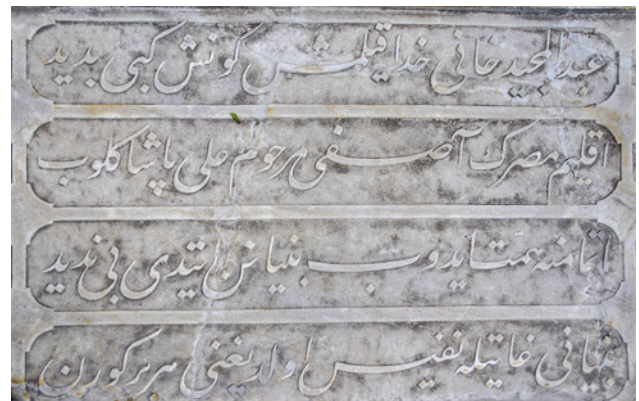 عبد المجید خانی خدا قیلمش کونش کبی بدید
اقلیم مصرک آصفی مرحوم علی پاشا کلوب
اتمامنه همّت ایدوب بنیانن ایتدی بی ندید
بنیانی غایتله نفیس اولدیغنی هر بر کورن